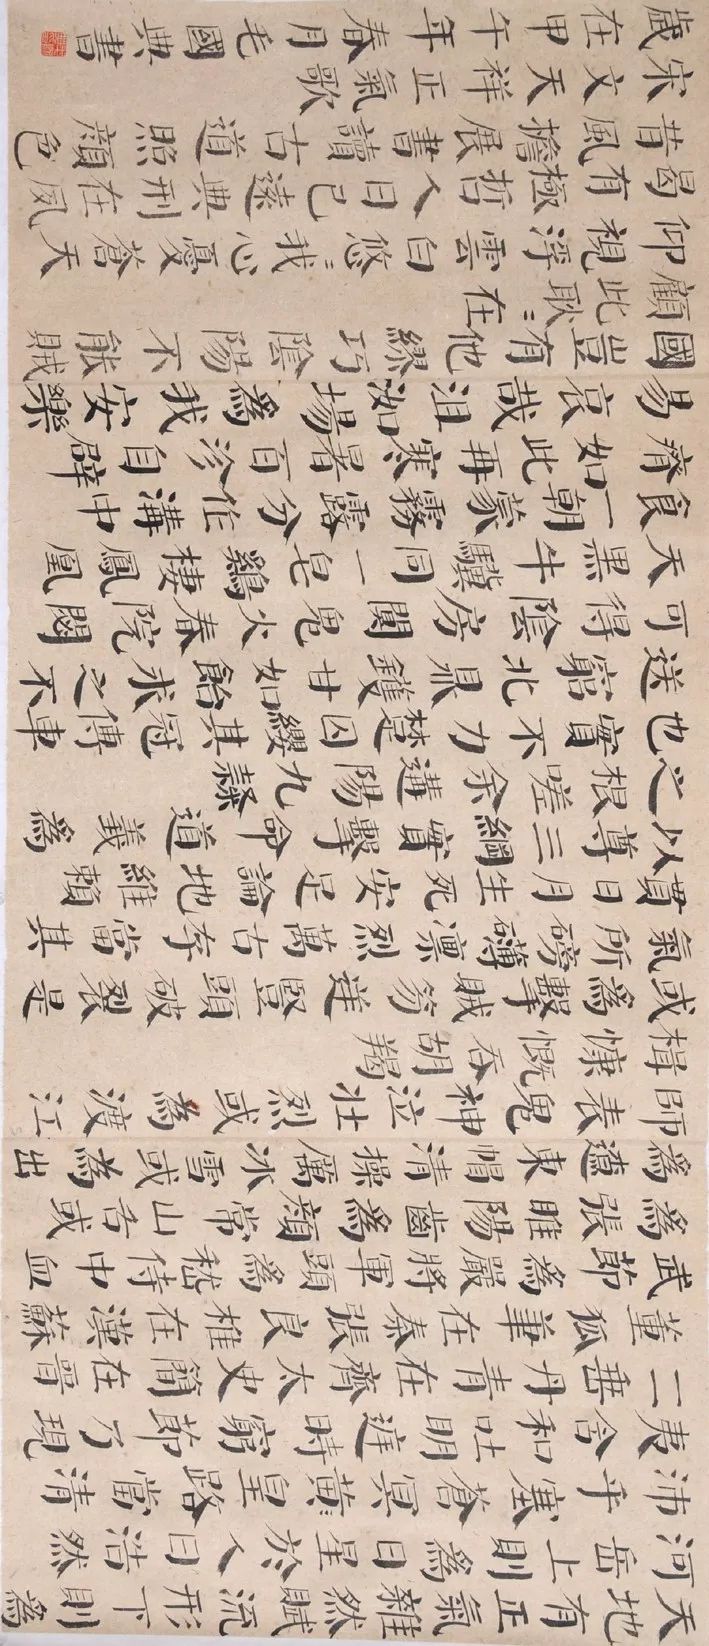 天地有正氣雜然賦流形下則為
河岳上則為日星於人曰浩然
沛乎塞蒼冥黃皇路當清
夷含和吐明庭時窮節乃現
一一垂丹青在齊太史簡在晉
董狐筆在秦張良椎在漢蘇
武節為嚴將軍頭為嵇侍中血
為張睢陽齒為顏常山舌或
為遼東帽清操厲冰雪或為出
師表鬼神泣壯烈或為渡江
楫慷慨吞胡羯
或為擊賊笏逆豎頭破裂是
氣所磅礴凜烈萬古存當其
貫日月生死安足論地維賴
以尊三綱實擊命道義為
之根嗟余遘陽九隸
也實不力楚囚纓其冠傳車
送窮北鼎鑊甘如飴求之不
可得陰房闃鬼火春院閟
天黑牛驥同一皂雞棲鳳凰
食一朝蒙霧露分作溝中
瘠如此再寒暑百沴自辟
易哀哉沮洳場為我安樂
國豈有他繆巧陰陽不能賊
顧此耿〻在
仰視浮雲白悠〻我心憂蒼天
曷有極哲人日已遠典刑在夙
昔風檐展書讀古道照顏色
宋文天祥正氣歌
歲在甲午年春月毛國典書